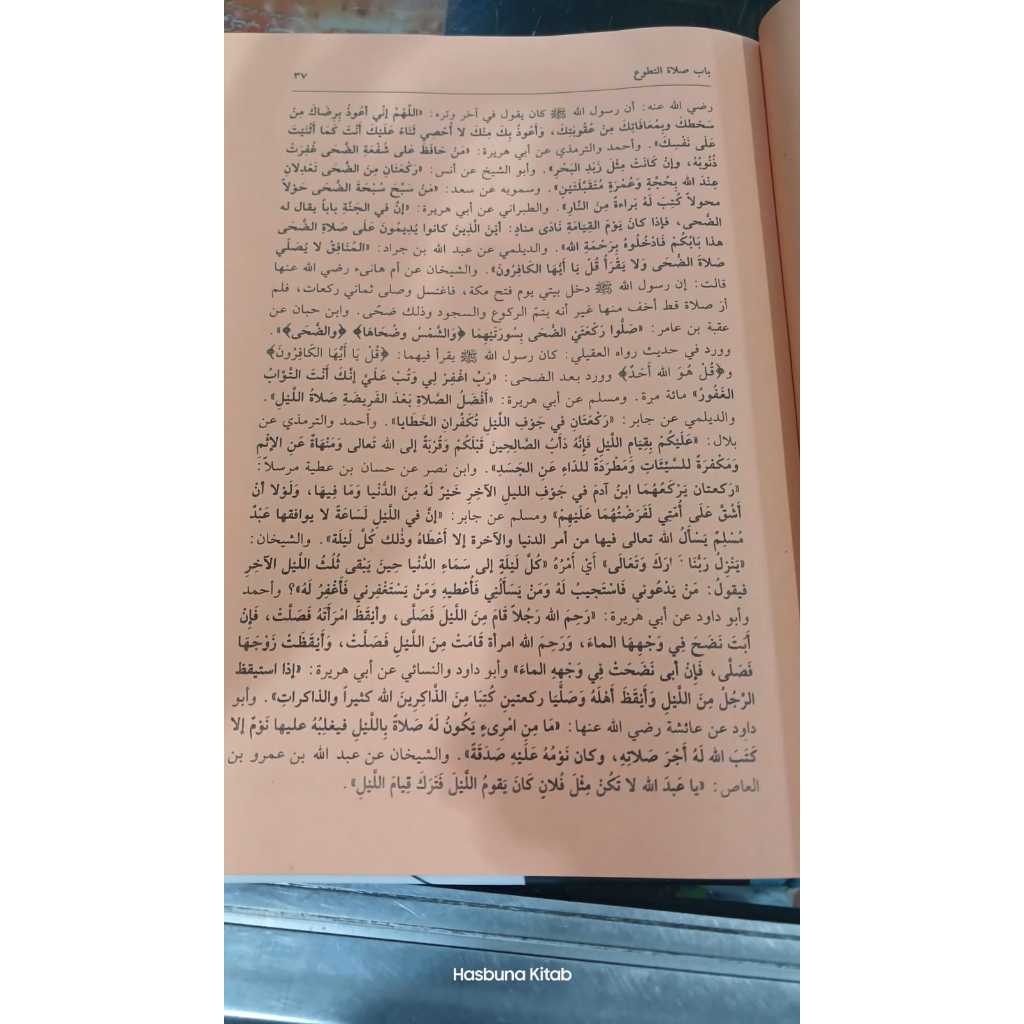 باب صلاة التطوع ٣٧
رضي الله عنه: أن رسول الله ﷺ كان يقول في آخر وتره: «اللَّهُمَّ إنِّي أعُوذُ بِرِضَاكَ مِنْ
سَخَطِكَ وبِمُعَافَاتِكَ مِنْ عُقُوبَتِكَ، وَأعُوذُ بِكَ مِنْكَ لا أُحْصِي ثَنَاءً عَلَيْكَ أنْتَ كَمَا أثْنَيْتَ
عَلَى نَفْسِكَ». وأحمد والترمذي عن أبي هريرة: «مَنْ حَافَظَ عَلى شُفْعَةِ الضُّحَى غُفِرَتْ
ذُنُوبُهُ، وإنْ كَانَتْ مِثْلَ زَبَدِ البَحْرِ». وأبو الشيخ عن أنس: «رَكْعَتَانِ مِنَ الضُّحَى تَعْدِلانِ
عِنْدَ الله بِحُجَّةٍ وَعُمْرَةٍ مُتَقَبَّلَتَيْنِ». وسمويه عن سعد: «مَنْ سَبَّحَ سُبْحَةَ الضُّحَى حَوْلاً
محولاً كُتِبَ لَهُ بَراءةٌ مِنَ النَّارِ». والطبراني عن أبي هريرة: «إنَّ في الجَنَّةِ باباً يقال له
الضُّحى، فإذا كانَ يَوْمَ القِيَامَةِ نَادَى منادٍ: أيْنَ الَّذِينَ كانوا يُدِيمُونَ عَلَى صَلاةِ الضُّحَى
هذا بَابُكُمْ فَادْخُلُوهُ بِرَحْمَةِ الله». والديلمي عن عبد الله بن جراد: «المُنَافِقُ لا يُصَلِّي
صَلاةَ الضُّحَى وَلا يَقْرَأُ قُلْ يَا أيُّهَا الكَافِرُونَ». والشيخان عن أم هانىء رضي الله عنها
قالت: إن رسول الله ﷺ دخل بيتي يوم فتح مكة، فاغتسل وصلى ثماني ركعات، فلم
أر صلاة قط أخف منها غير أنه يتمّ الركوع والسجود وذلك ضحًى. وابن حبان عن
عقبة بن عامر: «صَلُّوا رَكْعَتَيْ الضُّحَى بِسُورَتَيْهِمَا ﴿وَالشَّمْسُ وضُحَاهَا﴾ ﴿والضُّحَى﴾».
وورد في حديث رواه العقيلي: كان رسول الله ﷺ يقرأ فيهما: ﴿قُلْ يَا أيُّهَا الكَافِرُونَ﴾
و﴿قُلْ هُوَ الله أَحَدٌ﴾ وورد بعد الضحى: «رَبِّ اغْفِرْ لِي وَتُبْ عَلَيَّ إنَّكَ أنْتَ التَّوَّابُ
الغَفُورُ» مائة مرة. ومسلم عن أبي هريرة: «أفْضَلُ الصَّلاةِ بَعْدَ الفَرِيضَةِ صَلاةُ اللَّيْلِ».
والديلمي عن جابر: «رَكْعَتَانِ فِي جَوْفِ اللَّيْلِ تُكَفِّرَانِ الخَطَايا». وأحمد والترمذي عن
بلال: «عَلَيْكُمْ بِقِيَامِ اللَّيْلِ فَإنَّهُ دَأبُ الصَّالِحِينَ قَبْلَكُمْ وَقُرْبَةٌ إلى الله تَعالى وَمَنْهَاةٌ عَنِ الإثْمِ
وَمَكْفَرَةٌ للسَّيِّئَاتِ وَمَطْرَدَةٌ للدَّاءِ عَنِ الجَسَدِ». وابن نصر عن حسان بن عطية مرسلاً:
«ركعتان يَرْكَعُهُمَا ابنُ آدمَ في جَوْفِ الليلِ الآخِرِ خَيْرٌ لَهُ مِنَ الدُّنْيا وَمَا فِيهَا، وَلَوْلا أنْ
أشُقَّ عَلَى أُمَّتِي لَفَرَضْتُهُمَا عَلَيْهِمْ» ومسلم عن جابر: «إنَّ في اللَّيْلِ لَسَاعَةً لا يوافقها عَبْدٌ
مُسْلِمٌ يَسْألُ الله تعالى فيها من أمر الدنيا والآخرة إلا أعْطَاهُ وذٰلك كُلَّ لَيْلَة». والشيخان:
«يَنْزِلُ رَبُّنَا وَتَعَالَى» أيْ أمْرُهُ «كُلَّ لَيْلَةٍ إلى سَمَاءِ الدُّنْيا حِينَ يَبْقى ثُلُثُ اللَّيْلِ الآخِرِ
فيقولُ: مَنْ يَدْعُوني فَاسْتَجِيبُ لَهُ وَمَنْ يَسْألُنِي فَأُعْطِيهِ وَمَنْ يَسْتَغْفِرني فَأغْفِرُ لَهُ»؟ وأحمد
وأبو داود عن أبي هريرة: «رَحِمَ الله رَجُلاً قَامَ مِنَ اللَّيْلَ فَصَلَّى، وأيْقَظَ امْرَأتَهُ فَصَلَّتْ، فَإنْ
أبَتْ نَضَحَ فِي وَجْهِهَا الماءَ، وَرَحِمَ الله امرأة قَامَتْ مِنَ اللَّيْلِ فَصَلَّتْ، وَأيْقَظَتْ زَوْجَهَا
فَصَلَّى، فَإنْ أبى نَضَحَتْ فِي وَجْهِهِ الماءَ» وأبو داود والنسائي عن أبي هريرة: «إذا استيقظ
الرَّجُلُ مِنَ اللَّيْلِ وَأيْقَظَ أهْلَهُ وَصَلَّيَا ركعتينِ كُتِبَا مِنَ الذَّاكِرِينَ الله كثيراً والذاكراتِ». وأبو
داود عن عائشة رضي الله عنها: «مَا مِن امْرِىءٍ يَكُونُ لَهُ صَلاةٌ بِاللَّيْلِ فيغلِبُهُ عليها نَوْمٌ إلا
كَتَبَ الله لَهُ أجْرَ صَلاتِهِ، وكان نَوْمُهُ عَلَيْهِ صَدَقَةً». والشيخان عن عبد الله بن عمرو بن
العاص: «يا عَبدَ الله لا تَكُنْ مِثْلَ فُلانٍ كَانَ يَقومُ اللَّيْلَ فَتَرَكَ قِيامَ اللَّيْلِ».
Hasbuna Kitab